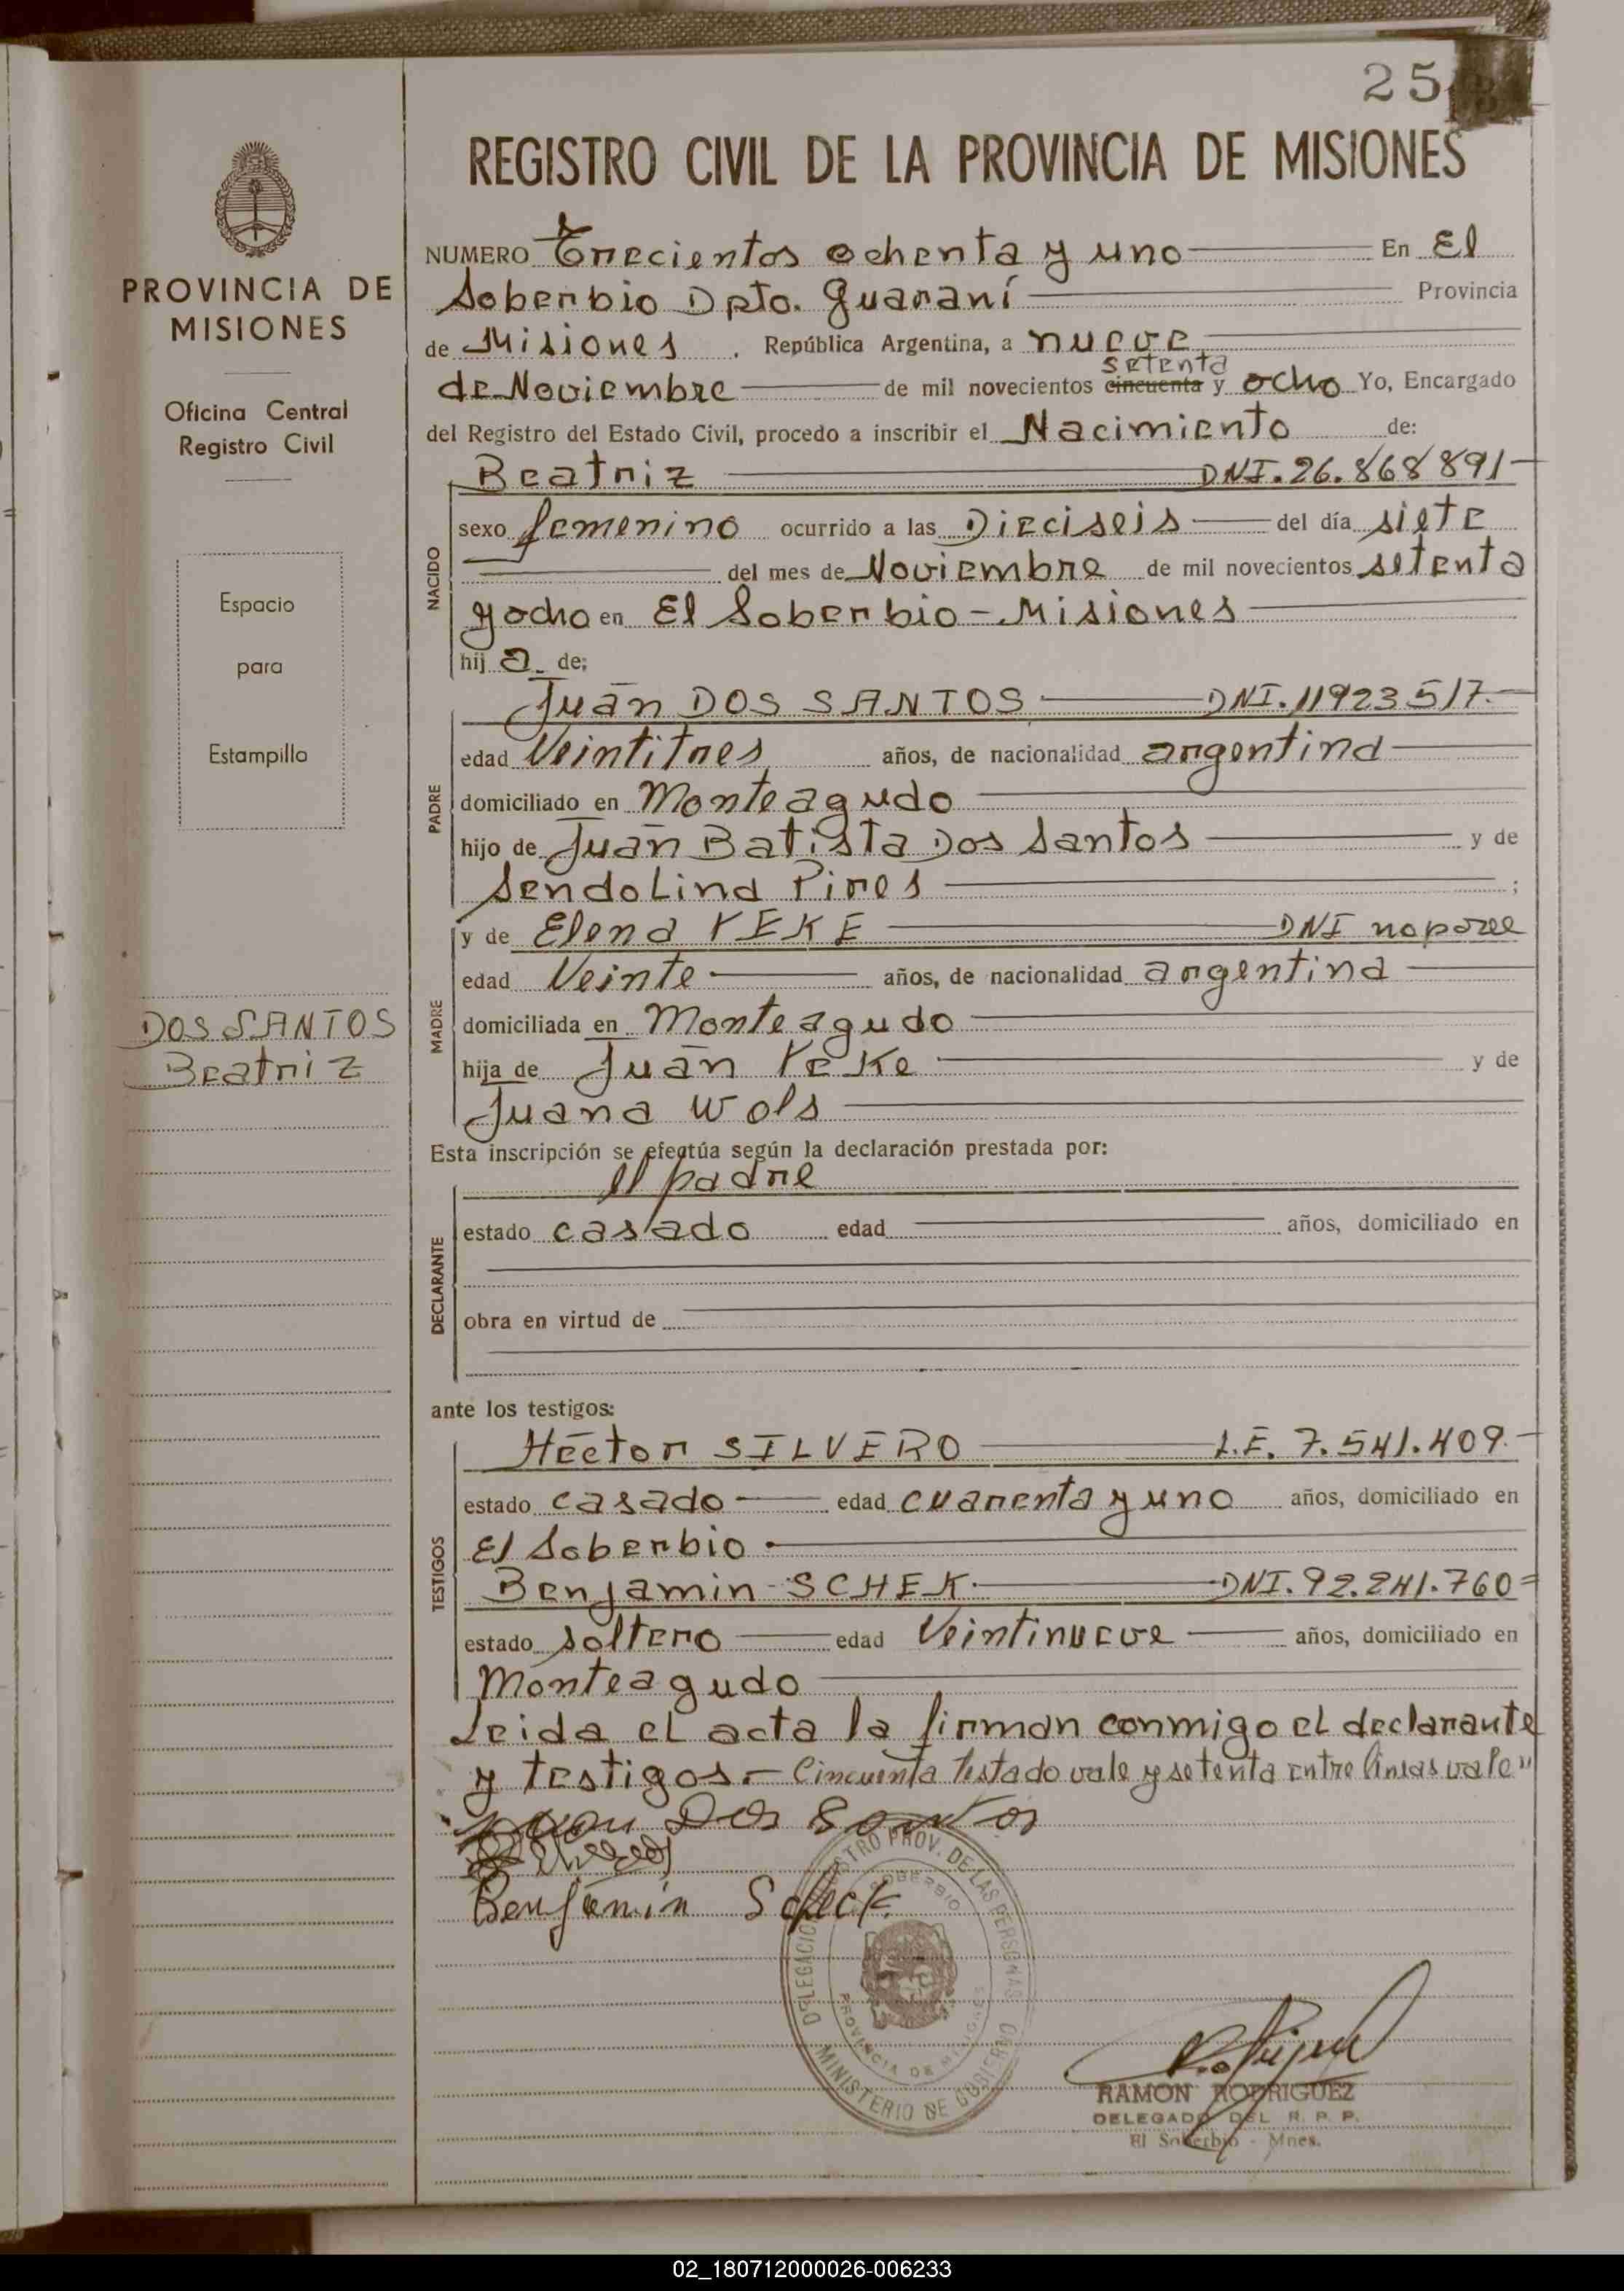 25
REGISTRO CIVIL DE LA PROVINCIA DE MISIONES
PROVINCIA DE
MISIONES
Oficina Central
Registro Civil
Espacio
para
Estampilla
DOS SANTOS
Beatriz
NUMERO Trecientos ochenta y uno En El
Soberbio Dpto. Guaraní Provincia
de Misiones . República Argentina, a nueve
setenta
de Noviembre de mil novecientos cincuenta y ocho Yo, Encargado
del Registro del Estado Civil, procedo a inscribir el Nacimiento de:
NACIDO
Beatriz DNI. 26.868891
sexo femenino ocurrido a las Dieciseis del día siete
del mes de Noviembre de mil novecientos setenta
y ocho en El Soberbio - Misiones
hij a de;
PADRE
Juan DOS SANTOS DNI. 11923517.
edad Veintitres años, de nacionalidad argentina
domiciliado en Monteagudo
hijo de Juan Batista Dos Santos y de
Sendolina Pires ;
MADRE
y de Elena YEKE DNI no posee
edad Veinte años, de nacionalidad argentina
domiciliada en Monteagudo
hija de Juan Yeke y de
Juana Wols
Esta inscripción se efectúa según la declaración prestada por:
DECLARANTE
el padre
estado casado edad años, domiciliado en
obra en virtud de
ante los testigos:
TESTIGOS
Héctor SILVERO L.E. 7.541.409.
estado casado edad cuarenta y uno años, domiciliado en
El Soberbio
Benjamin SCHEK. DNI. 92.241.760=
estado soltero edad Veintinueve años, domiciliado en
Monteagudo
Leida el acta la firman conmigo el declarante
y testigos.- Cincuenta testado vale y setenta entre lineas vale"
Juan Dos Santos
Benjamin Scheck
DELEGACION REGISTRO PROV. DE LAS PERSONAS
SOBERBIO
PROVINCIA DE MISIONES
MINISTERIO DE GOBIERNO
RAMON RODRIGUEZ
DELEGADO DEL R. P. P.
El Soberbio - Mnes.
02_180712000026-006233